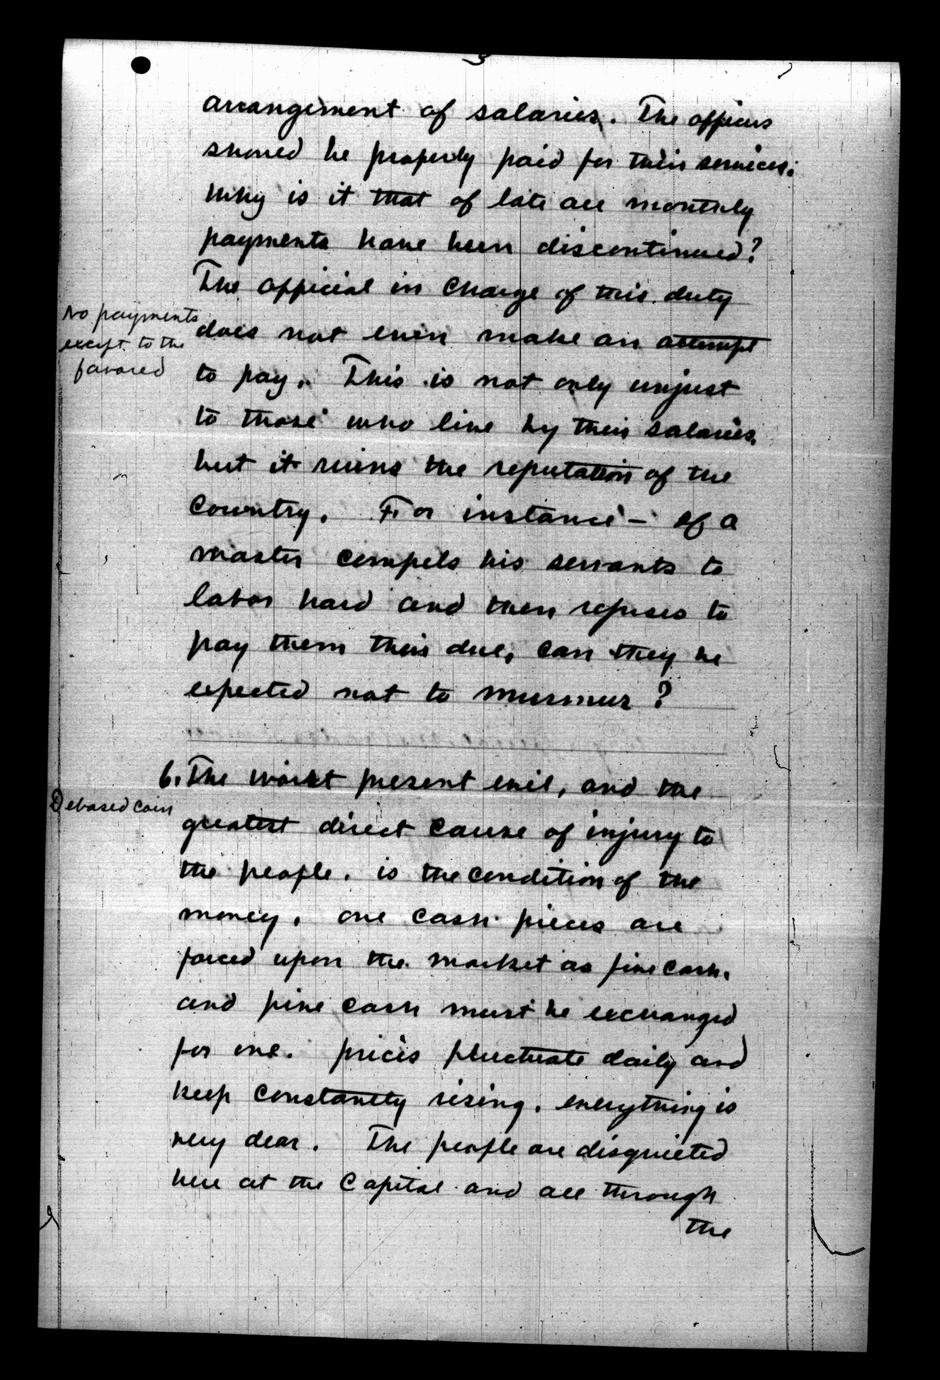 3
arrangement of salaries. The officers
should be properly paid for their services.
Why is it that of late all monthly
payments have been discontinued?
The official in charge of this duty
No payments
except to the
favored
does not even make an attempt
to pay. This is not only unjust
to those who live by their salaries,
but it ruins the reputation of the
country. For instance - if a
master compels his servants to
labor hard and then refuses to
pay them their due, can they be
expected not to murmur?
6. The worst present evil, and the
Debased coin
greatest direct cause of injury to
the people, is the condition of the
money. one cash pieces are
forced upon the market as five cash,
and five cash must be exchanged
for one. prices fluctuate daily and
keep constantly rising. everything is
very dear. The people are disquieted
here at the Capital and all through
the